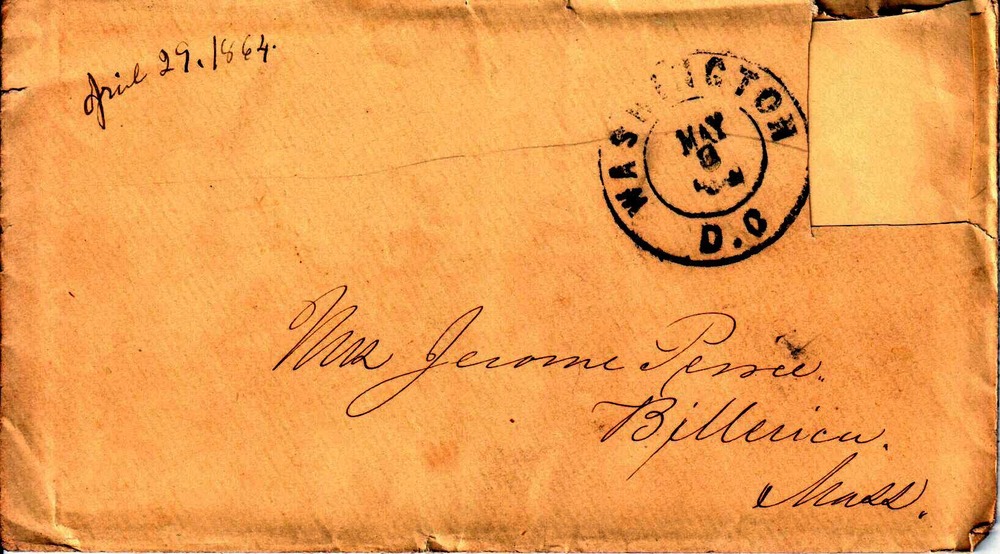 April 29. 1864.
WASHINGTON
D.C
MAY
Mrs Jerome Peirce.
Billerica.
Mass.